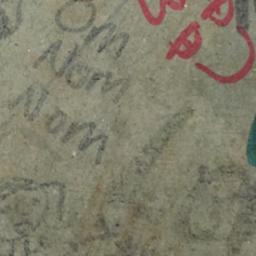 Om
Nom
Nom